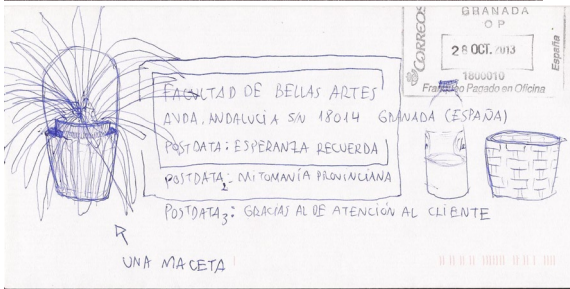 CORREOS
GRANADA
O P
28 OCT. 2013
1800010
Franqueo Pagado en Oficina
España
FACULTAD DE BELLAS ARTES
AVDA. ANDALUCIA S/N 18014 GRANADA (ESPAÑA)
POSTDATA: ESPERANZA RECUERDA
POSTDATA2: MITOMANÍA PROVINCIANA
POSTDATA3: GRACIAS AL DE ATENCIÓN AL CLIENTE
UNA MACETA